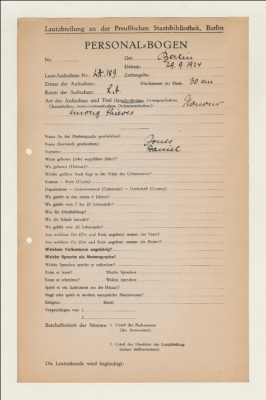 Lautabteilung an der Preußischen Staatsbibliothek, Berlin
PERSONAL=BOGEN
Nr. Ort: Berlin
Datum: 29.9.1924
Laut-Aufnahme Nr.: LA 189 Zeitangabe:
Dauer der Aufnahme: Durchmesser der Platte: 30 cm
Raum der Aufnahme: L.A.
Art der Aufnahme und Titel Honour
among thieves
Name (in der Muttersprache geschrieben):
Name (lateinisch geschrieben): Jones
Vorname: Daniel
Wann geboren (oder ungefähres Alter)?
Wo geboren (Heimat)?
Welche größere Stadt liegt in der Nähe des Geburtsortes?
Kanton — Kreis
Departement — Gouvernement — Grafschaft (County)
Wo gelebt in den ersten 6 Jahren?
Wo gelebt vom 7. bis 20. Lebensjahr?
Was für Schulbildung?
Wo die Schule besucht?
Wo gelebt vom 20. Lebensjahr?
Aus welchem Ort (Ort und Kreis angeben) stammt der Vater?
Aus welchem Ort (Ort und Kreis angeben) stammt die Mutter?
Welchem Volksstamm angehörig?
Welche Sprache als Muttersprache?
Welche Sprachen spricht er außerdem?
Kann er lesen? Welche Sprachen?
Kann er schreiben? Welche Sprachen?
Spielt er ein Instrument aus der Heimat?
Singt oder spielt er modern europäische Musikweisen?
Religion: Beruf:
Vorgeschlagen von: 1.
2.
Beschaffenheit der Stimme: 1. Urteil des Fachmannes
(des Assistenten):
2. Urteil des Direktors der Lautabteilung
(seines Stellvertreters):
Die Lauturkunde wird beglaubigt: